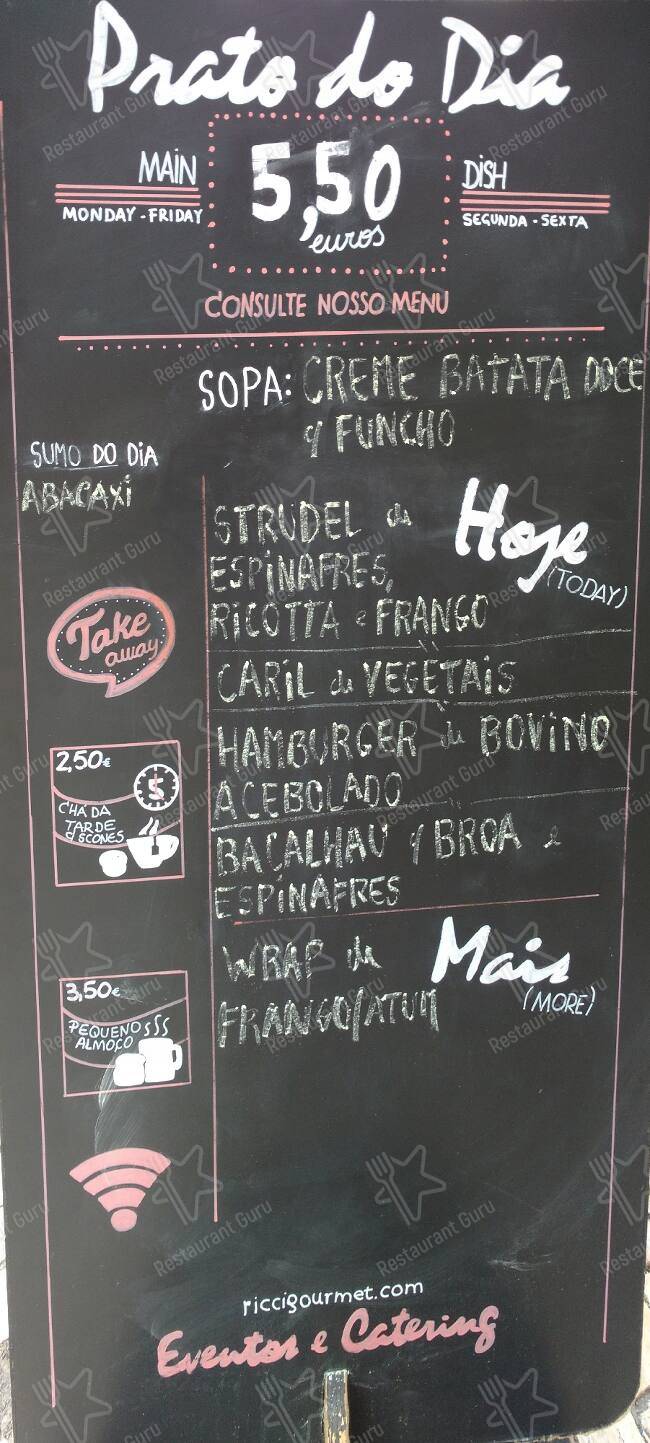 Prato do Dia
MAIN
5,50
euros
DISH
MONDAY - FRIDAY
SEGUNDA - SEXTA
CONSULTE NOSSO MENU
SOPA: CREME BATATA DOCE
q FUNCHO
SUMO DO DIA
ABACAXI
Hoje
(TODAY)
STRUDEL de
ESPINAFRES,
RICOTTA e FRANGO
CARIL de VEGETAIS
HAMBURGER de BOVINO
ACEBOLADO
BACALHAU q BROA e
ESPINAFRES
Take
away
2,50€
CHÁ DA
TARDE
C/ SCONES
Mais
(MORE)
WRAP de
FRANGO/ATUM
3,50€
PEQUENO
ALMOÇO
riccigourmet.com
Eventos e Catering
Restaurant Guru